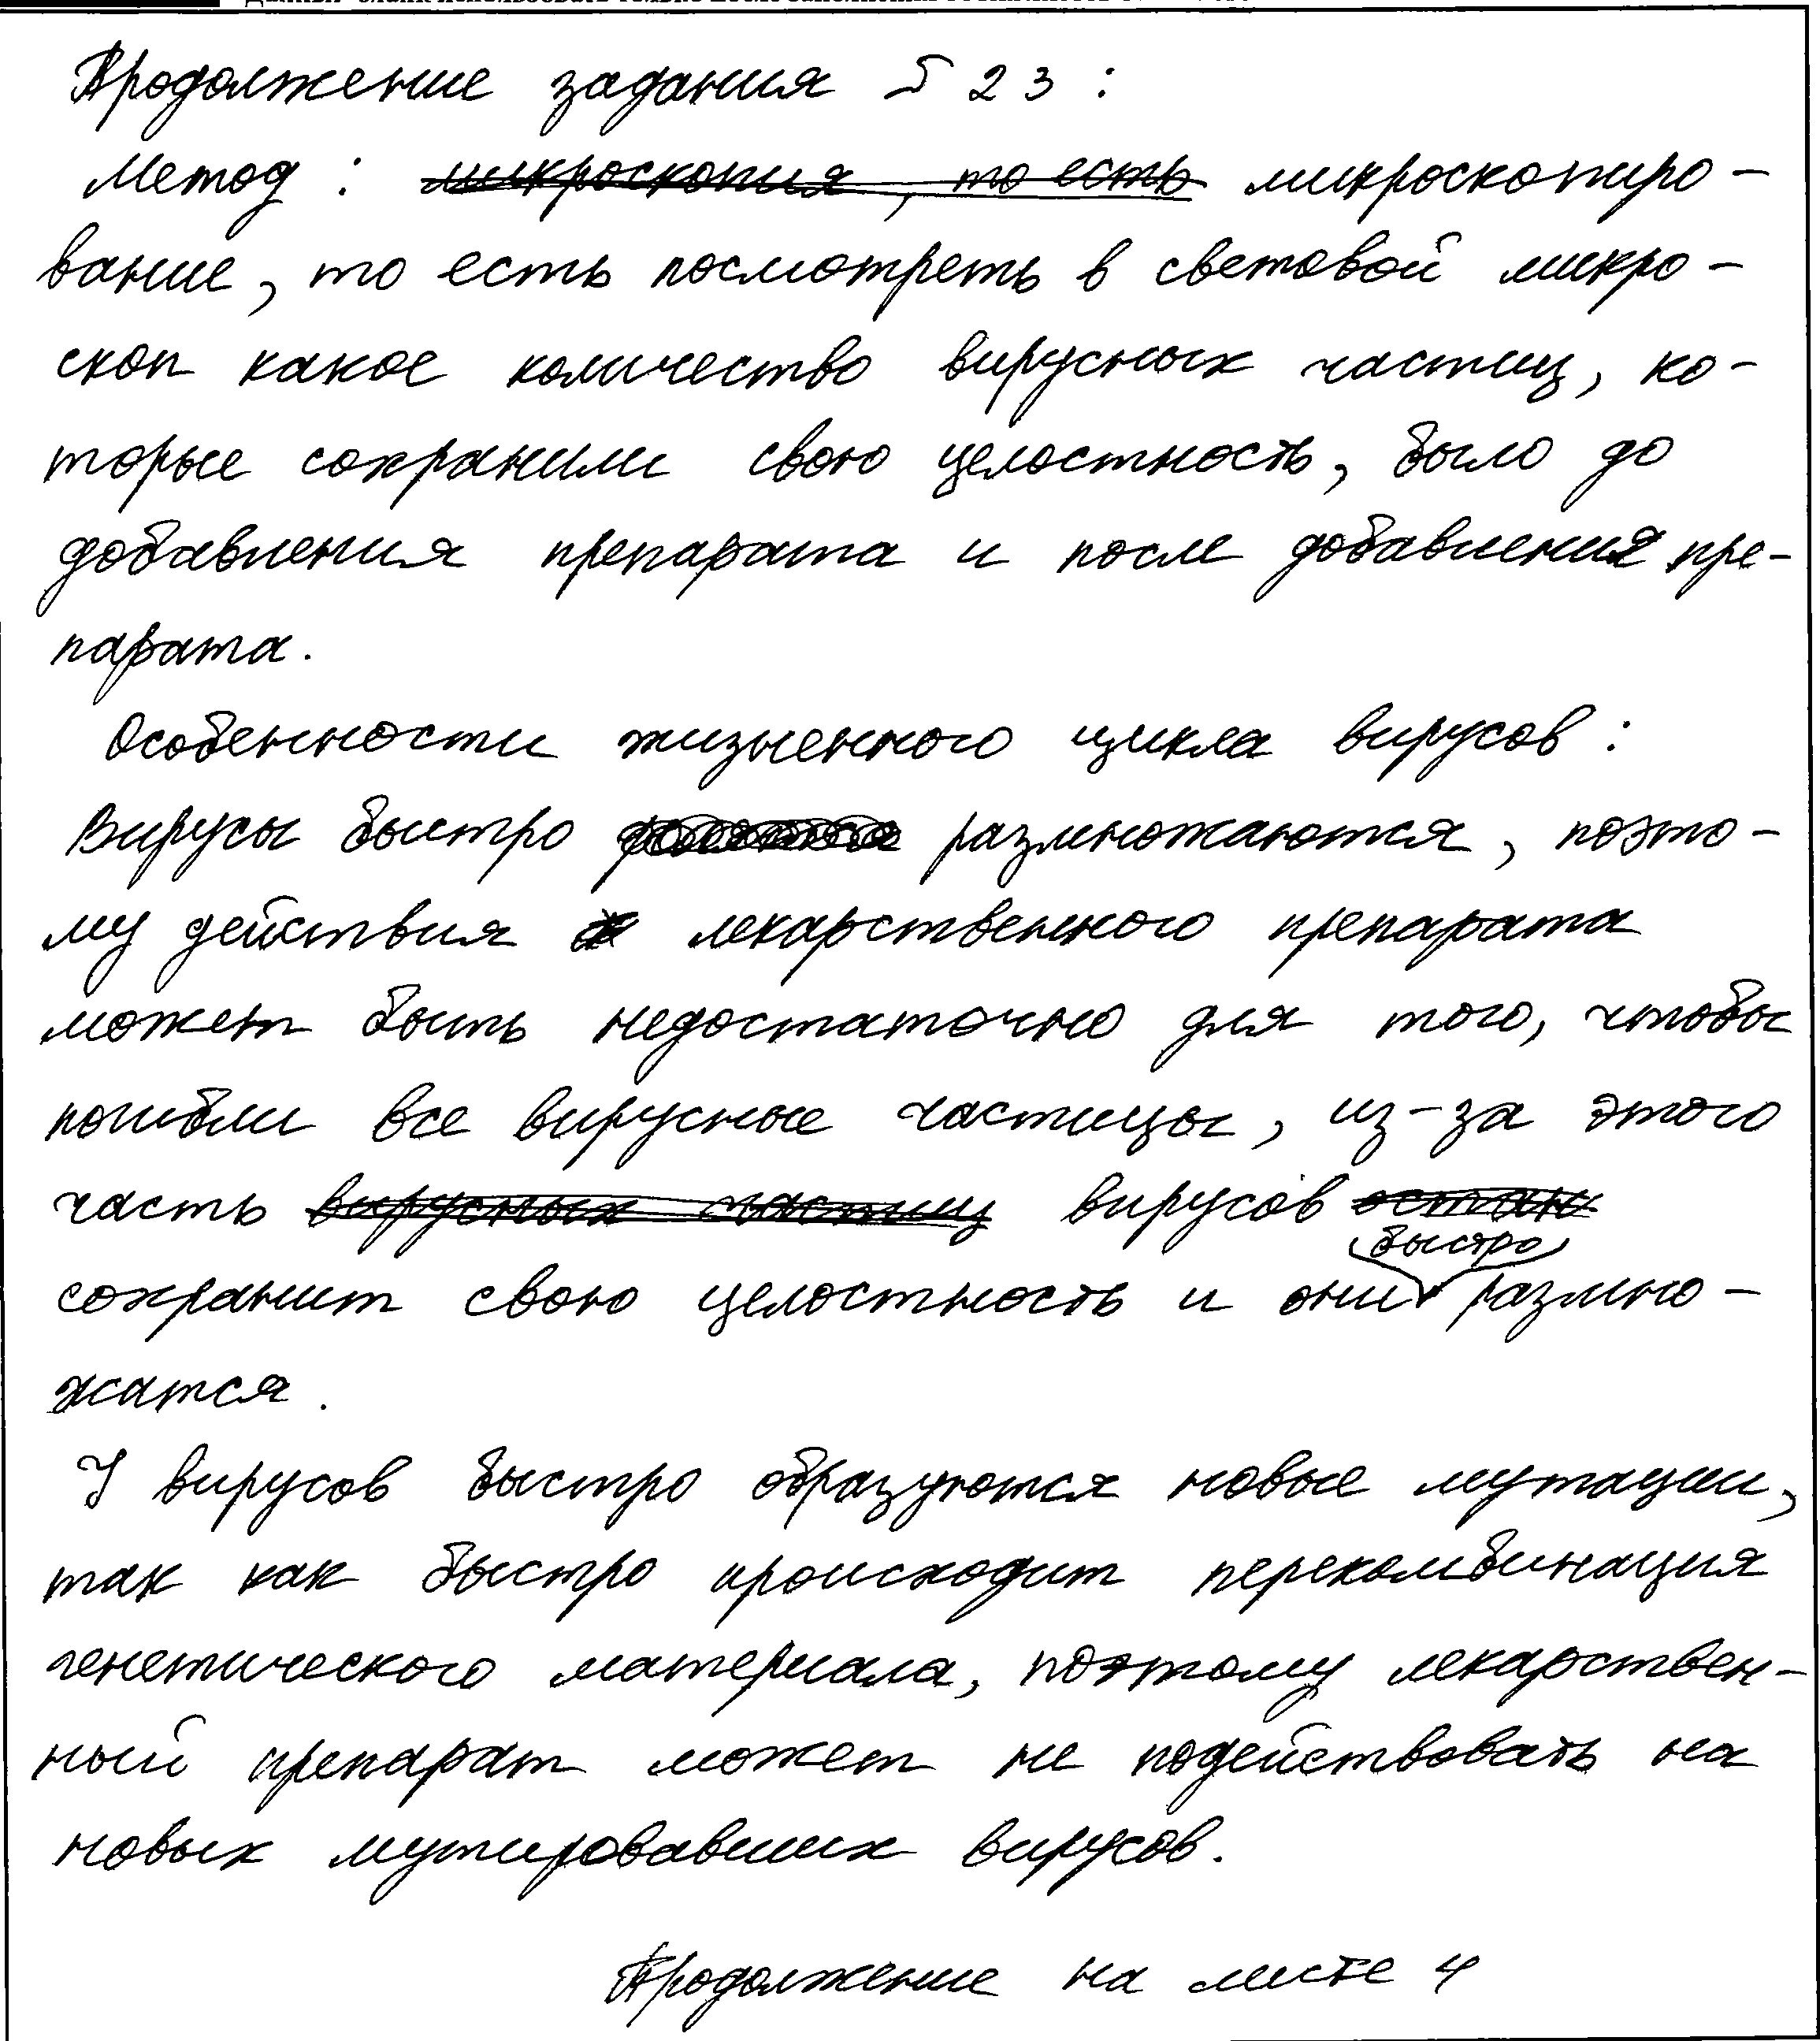 Продолжение задания 23 :
Метод : микроскопия, то есть микроскопиро-
вание, то есть посмотреть в световой микро-
скоп какое количество вирусных частиц, ко-
торые сохранили свою целостность, было до
добавления препарата и после добавления пре-
парата.
Особенности жизненного цикла вирусов :
Вирусы быстро размножаются, поэто-
му действия лекарственного препарата
может быть недостаточно для того, чтобы
погибли все вирусные частицы, из-за этого
часть вирусных частиц вирусов остан
быстро
сохранит свою целостность и они размно-
жатся.
У вирусов быстро образуются новые мутации,
так как быстро происходит перекомбинация
генетического материала, поэтому лекарствен-
ный препарат может не подействовать на
новых мутировавших вирусов.
Продолжение на листе 4